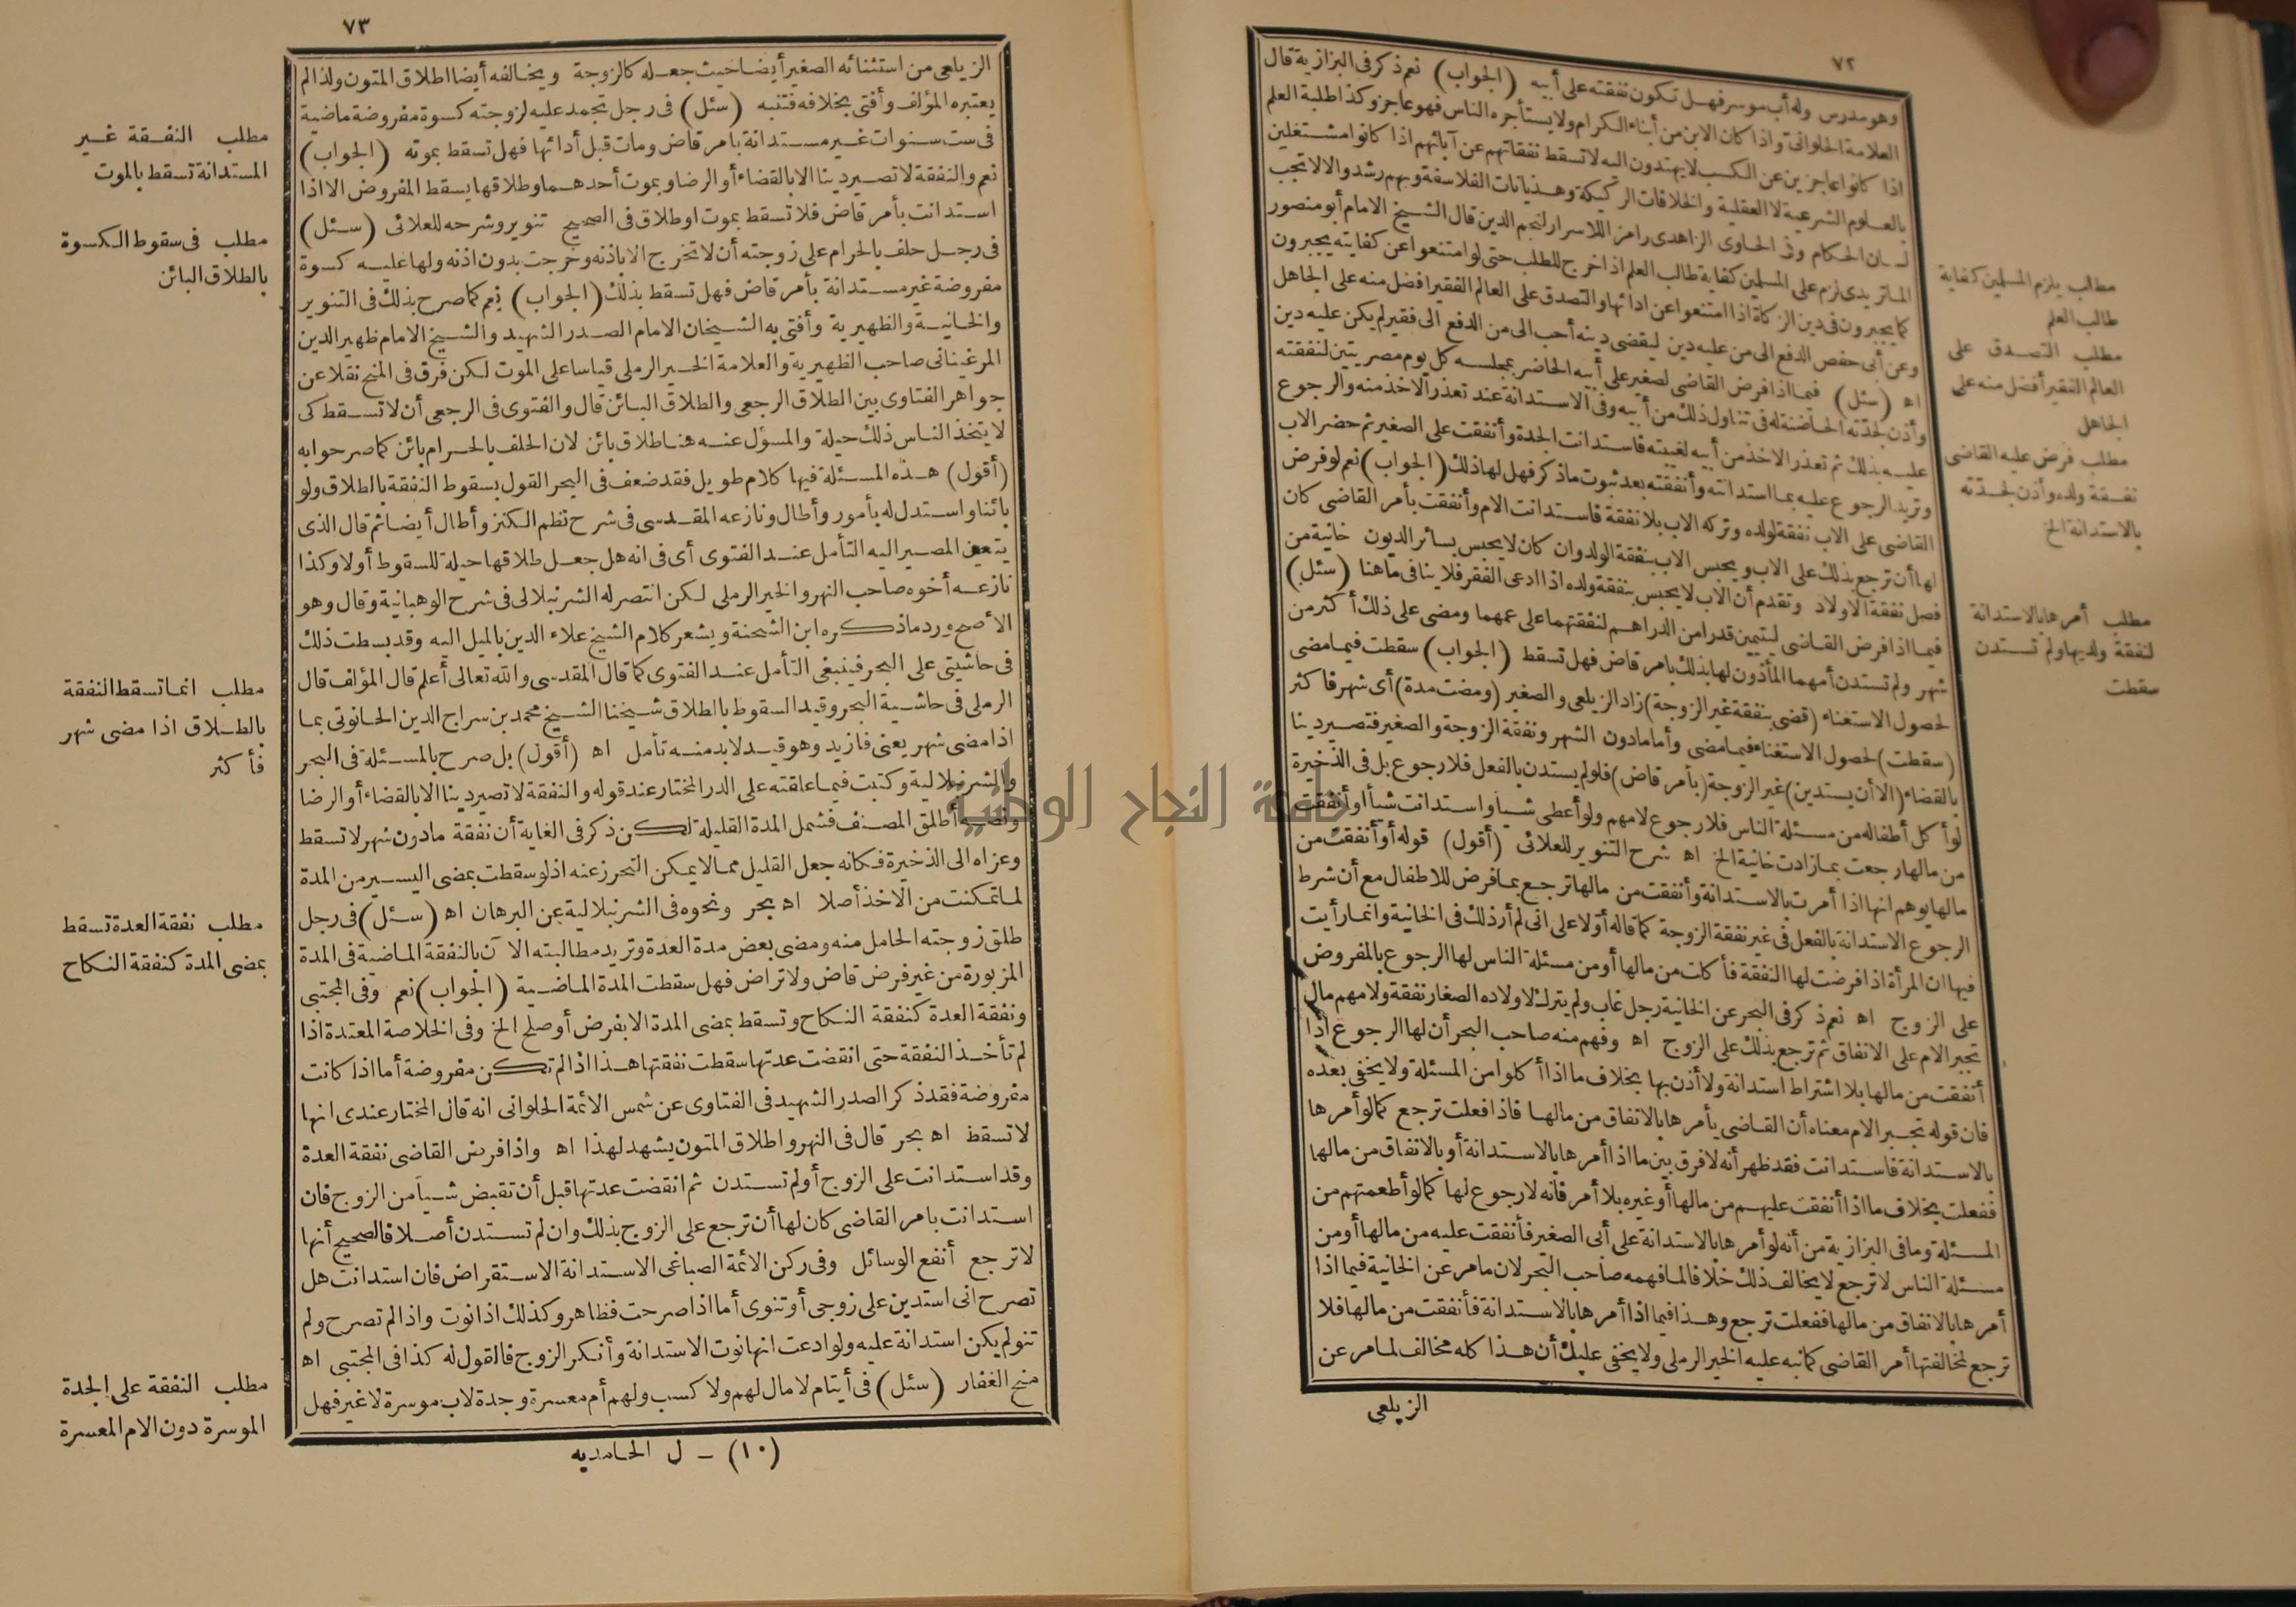 ٧٢
وهو مدرس وله أب موسر فهل تكون نفقته على أبيه (الجواب) نعم ذكر فى البزازية قال
العلامة الحلوانى واذا كان الابن من أبناء الكرام ولا يستأجره الناس فهو عاجز وكذا طلبة العلم
اذا كانوا عاجزين عن الكسب لا يهتدون اليه لا تسقط نفقاتهم عن آبائهم اذا كانوا مشتغلين
بالعلوم الشرعية لا العقلية والخلافات الركيكة وهذيانات الفلاسفة وبهم رشد والا لا تجب
الحكام وفى الحاوى الزاهدى رامزا للاسرار لنجم الدين قال الشيخ الامام أبو منصور
الماتريدى لزم على المسلمين كفاية طالب العلم اذا خرج للطلب حتى لو امتنعوا عن كفايته يجبرون
كما يجبرون فى دين الزكاة اذا امتنعوا عن ادائها والتصدق على العالم الفقير افضل منه على الجاهل
وعن أبى حفص الدفع الى من عليه دين ليقضى دينه أحب الى من الدفع الى فقير لم يكن عليه دين
اه (سئل) فيما اذا فرض القاضى لصغير على أبيه الحاضر بمجلسه كل يوم مصريتين لنفقته
وأذن لجدته الحاضنة له فى تناول ذلك من أبيه وفى الاستدانة عند تعذر الاخذ منه والرجوع
عليه بذلك ثم تعذر الاخذ من أبيه لغيبته فاستدانت الجدة وأنفقت على الصغير ثم حضر الاب
وتريد الرجوع عليه بما استدانته وأنفقته بعد ثبوت ماذكر فهل لها ذلك (الجواب) نعم لو فرض
القاضى على الاب نفقة لولده وتركه الاب بلا نفقة فاستدانت الام وأنفقت بأمر القاضى كان
لها أن ترجع بذلك على الاب ويحبس الاب بنفقة الولد وان كان لا يحبس بسائر الديون خانية من
فصل نفقة الاولاد وتقدم أن الاب لا يحبس بنفقة ولده اذا ادعى الفقر فلا ينافى ماهنا (سئل)
فيما اذا فرض القاضى ليتيمين قدرا من الدراهم لنفقتهما على عمهما ومضى على ذلك أكثر من
شهر ولم تستدن أمهما المأذون لها بذلك بامر قاض فهل تسقط (الجواب) سقطت فيما مضى
لحصول الاستغناء (قضى بنفقة غير الزوجة) زاد الزيلعى والصغير (ومضت مدة) أى شهر فاكثر
(سقطت) لحصول الاستغناء فيما مضى وأما مادون الشهر ونفقة الزوجة والصغير فتصير دينا
بالقضاء (الا أن يستدين) غير الزوجة (بأمر قاض) فلو لم يستدن بالفعل فلا رجوع بل فى الذخيرة
لو أكل أطفاله من مسئلة الناس فلا رجوع لامهم ولو أعطى شيأ واستدانت شيأ أو أنفقت
من مالها رجعت بما زادت خانية الخ اه شرح التنوير للعلائى (أقول) قوله أو أنفقت من
مالها يوهم انها اذا أمرت بالاستدانة وأنفقت من مالها ترجع بما فرض للاطفال مع أن شرط
الرجوع الاستدانة بالفعل فى غير نفقة الزوجة كما قاله أولا على انى لم أر ذلك فى الخانية وانما رأيت
فيها ان المرأة اذا فرضت لها النفقة فأكلت من مالها أو من مسئلة الناس لها الرجوع بالمفروض
على الزوج اه نعم ذكر فى البحر عن الخانية رجل غاب ولم يترك لاولاده الصغار نفقة ولامهم مال
تجبر الام على الانفاق ثم ترجع بذلك على الزوج اه وفهم منه صاحب البحر أن لها الرجوع اذا
أنفقت من مالها بلا اشتراط استدانة ولا أذن بها بخلاف ما اذا أكلوا من المسئلة ولا يخفى بعده
فان قوله تجبر الام معناه أن القاضى يأمرها بالانفاق من مالها فاذا فعلت ترجع كما لو أمرها
بالاستدانة فاستدانت فقد ظهر أنه لا فرق بين ما اذا أمرها بالاستدانة أو بالانفاق من مالها
ففعلت بخلاف ما اذا أنفقت عليهم من مالها أو غيره بلا أمر فانه لا رجوع لها كما لو أطعمتهم من
المسئلة وما فى البزازية من أنه لو أمرها بالاستدانة على أبى الصغير فأنفقت عليه من مالها أو من
مسئلة الناس لا ترجع لا يخالف ذلك خلافا لما فهمه صاحب البحر لان مامر عن الخانية فيما اذا
أمرها بالانفاق من مالها ففعلت ترجع وهذا فيما اذا أمرها بالاستدانة فأنفقت من مالها فلا
ترجع لمخالفتها أمر القاضى كما نبه عليه الخير الرملى ولا يخفى عليك أن هذا كله مخالف لما مر عن
الزيلعى
مطلب يلزم المسلمين كفاية
طالب العلم
مطلب التصدق على
العالم الفقير أفضل منه على
الجاهل
مطلب فرض عليه القاضى
نفقة ولده وأذن لجدته
بالاستدانة الخ
مطلب أمرها بالاستدانة
لنفقة ولديها ولم تستدن
سقطت
٧٣
الزيلعى من استثنائه الصغير أيضا حيث جعله كالزوجة ويخالفه أيضا اطلاق المتون ولذا لم
يعتبره المؤلف وأفتى بخلافه فتنبه (سئل) فى رجل تجمد عليه لزوجته كسوة مفروضة ماضية
فى ست سنوات غير مستدانة بامر قاض ومات قبل أدائها فهل تسقط بموته (الجواب)
نعم والنفقة لا تصير دينا الا بالقضاء أو الرضا وبموت أحدهما وطلاقها يسقط المفروض الا اذا
استدانت بأمر قاض فلا تسقط بموت او طلاق فى الصحيح تنوير وشرحه للعلائى (سئل)
فى رجل حلف بالحرام على زوجته أن لا تخرج الا باذنه وخرجت بدون اذنه ولها عليه كسوة
مفروضة غير مستدانة بأمر قاض فهل تسقط بذلك (الجواب) نعم كما صرح بذلك فى التنوير
والخانية والظهيرية وأفتى به الشيخان الامام الصدر الشهيد والشيخ الامام ظهير الدين
المرغينانى صاحب الظهيرية والعلامة الخير الرملى قياسا على الموت لكن فرق فى المنح نقلا عن
جواهر الفتاوى بين الطلاق الرجعى والطلاق البائن قال والفتوى فى الرجعى أن لا تسقط كى
لا يتخذ الناس ذلك حيلة والمسؤل عنه هنا طلاق بائن لان الحلف بالحرام بائن كما صرحوا به
(أقول) هذه المسئلة فيها كلام طويل فقد ضعف فى البحر القول بسقوط النفقة بالطلاق ولو
بائنا واستدل له بأمور وأطال ونازعه المقدسى فى شرح نظم الكنز وأطال أيضا ثم قال الذى
يتعين المصير اليه التأمل عند الفتوى أى فى انه هل جعل طلاقها حيلة للسقوط أولا وكذا
نازعه أخوه صاحب النهر والخير الرملى لكن انتصر له الشرنبلالى فى شرح الوهبانية وقال وهو
الأصح ورد ماذكره ابن الشحنة ويشعر كلام الشيخ علاء الدين بالميل اليه وقد بسطت ذلك
فى حاشيتى على البحر فينبغى التأمل عند الفتوى كما قال المقدسى والله تعالى أعلم قال المؤلف قال
الرملى فى حاشية البحر وقيد السقوط بالطلاق شيخنا الشيخ محمد بن سراج الدين الحانوتى بما
اذا مضى شهر يعنى فازيد وهو قيد لا بد منه تأمل اه (أقول) بل صرح بالمسئلة فى البحر
والشرنبلالية وكتبت فيما علقته على الدر المختار عند قوله والنفقة لا تصير دينا الا بالقضاء أو الرضا
ونصه أطلق المصنف فشمل المدة القليلة لكن ذكر فى الغاية أن نفقة مادون شهر لا تسقط
وعزاه الى الذخيرة فكانه جعل القليل مما لا يمكن التحرز عنه اذ لو سقطت بمضى اليسير من المدة
لما تمكنت من الاخذ أصلا اه بحر ونحوه فى الشرنبلالية عن البرهان اه (سئل) فى رجل
طلق زوجته الحامل منه ومضى بعض مدة العدة وتريد مطالبته الآن بالنفقة الماضية فى المدة
المزبورة من غير فرض قاض ولا تراض فهل سقطت المدة الماضية (الجواب) نعم وفى المجتبى
ونفقة العدة كنفقة النكاح وتسقط بمضى المدة الا بفرض أو صلح الخ وفى الخلاصة المعتدة اذا
لم تأخذ النفقة حتى انقضت عدتها سقطت نفقتها هذا اذا لم تكن مفروضة أما اذا كانت
مفروضة فقد ذكر الصدر الشهيد فى الفتاوى عن شمس الائمة الحلوانى انه قال المختار عندى انها
لا تسقط اه بحر قال فى النهر واطلاق المتون يشهد لهذا اه واذا فرض القاضى نفقة العدة
وقد استدانت على الزوج أو لم تستدن ثم انقضت عدتها قبل أن تقبض شيأ من الزوج فان
استدانت بامر القاضى كان لها أن ترجع على الزوج بذلك وان لم تستدن أصلا فالصحيح أنها
لا ترجع أنفع الوسائل وفى ركن الائمة الصباغى الاستدانة الاستقراض فان استدانت هل
تصرح انى استدين على زوجى أو تنوى أما اذا صرحت فظاهر وكذلك اذا نوت واذا لم تصرح ولم
تنو لم يكن استدانة عليه ولو ادعت انها نوت الاستدانة وأنكر الزوج فالقول له كذا فى المجتبى اه
منح الغفار (سئل) فى أيتام لا مال لهم ولا كسب ولهم أم معسرة وجدة لاب موسرة لا غير فهل
(١٠) – ل الحامديه
مطلب النفقة غير
المستدانة تسقط بالموت
مطلب فى سقوط الكسوة
بالطلاق البائن
مطلب انما تسقط النفقة
بالطلاق اذا مضى شهر
فأكثر
مطلب نفقة العدة تسقط
بمضى المدة كنفقة النكاح
مطلب النفقة على الجدة
الموسرة دون الام المعسرة
جامعة النجاح الوطنية